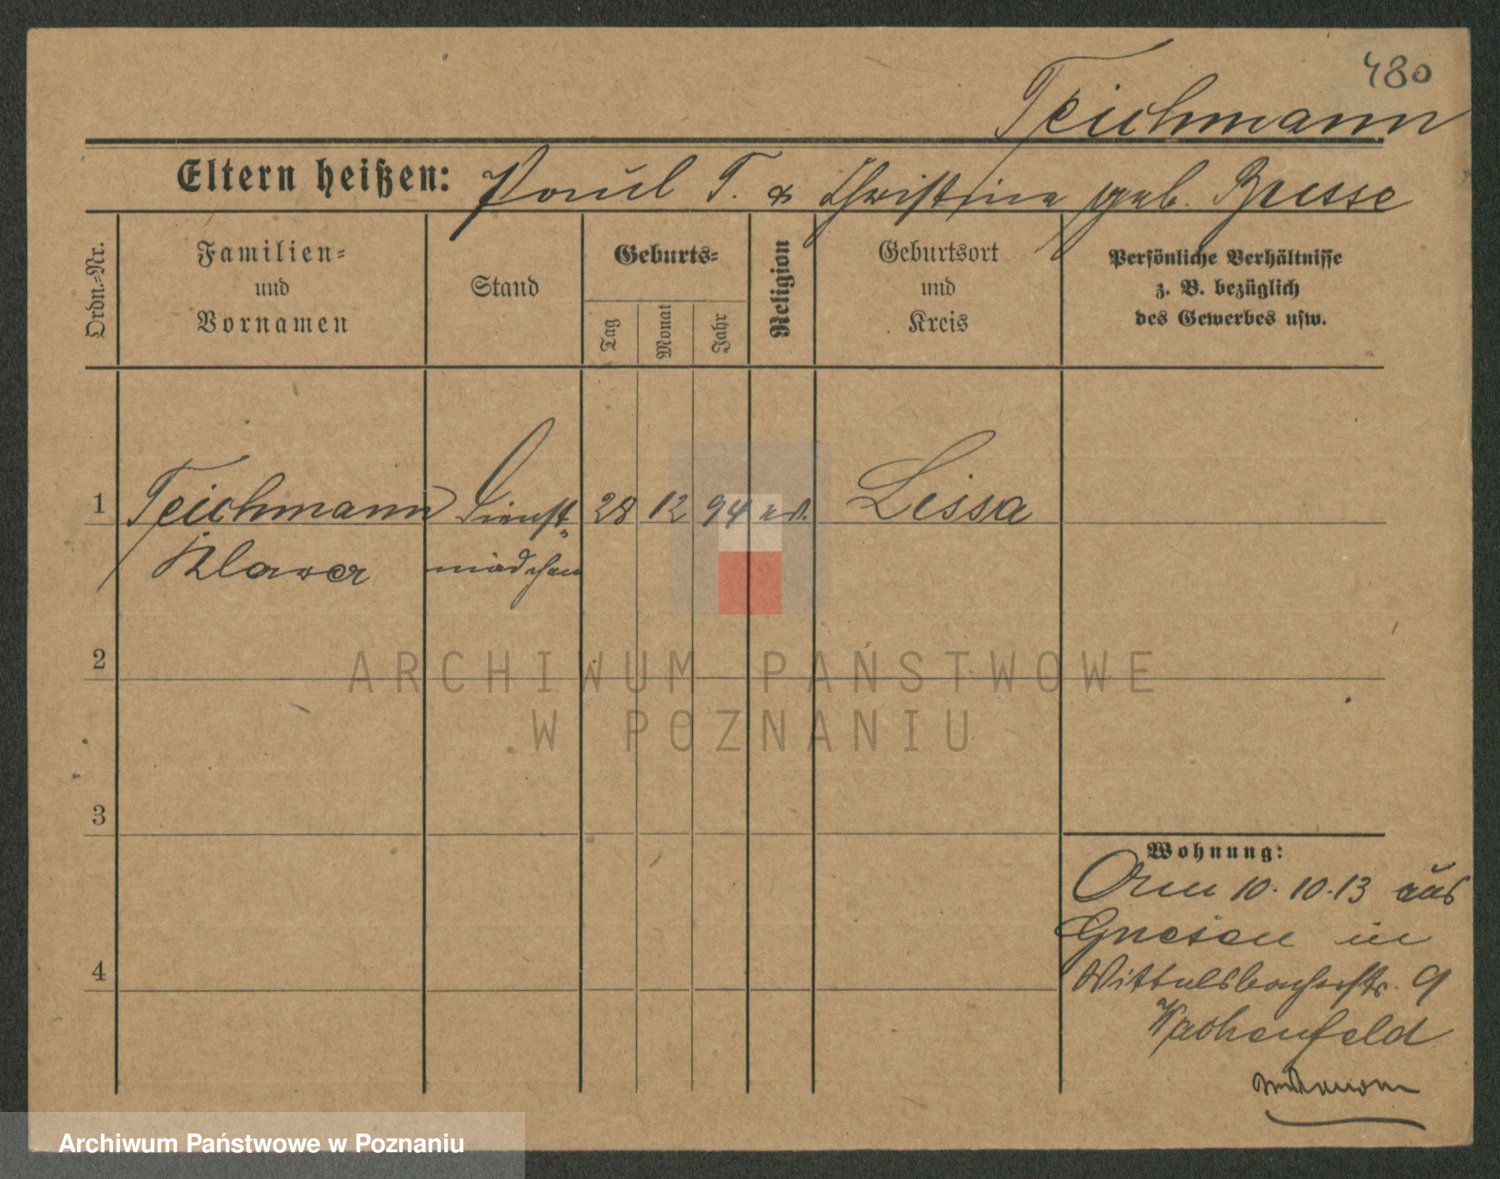 480
Teichmann
Eltern heißen: Paul T. & Christine geb. Bresse
Ordn.-Nr.
Familien-
und
Vornamen
Stand
Geburts-
Tag
Monat
Jahr
Religion
Geburtsort
und
Kreis
Persönliche Verhältnisse
z. B. bezüglich
des Gewerbes usw.
1 Teichmann Dienst- 28 12 94 Lissa
Klara mädchen
2
3
4
Wohnung:
Am 10.10.13 aus
Gnesen in
Wittelsbacherstr. 9
Wachenfeld
ARCHIWUM PAŃSTWOWE
W POZNANIU
Archiwum Państwowe w Poznaniu